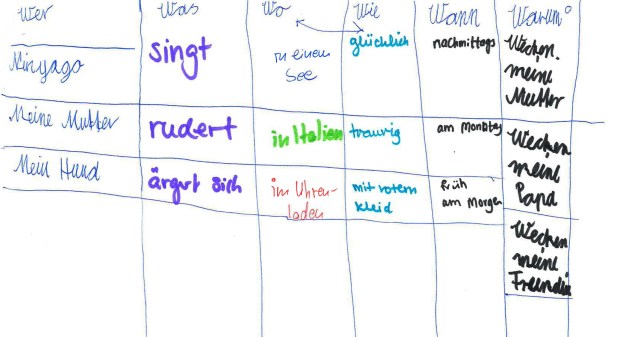 Wer Was Wo Wie Wann Warum
Minyago singt in einem See glücklich nachmittags Wechen. meine Mutter
Meine Mutter rudert in Italien traurig am Montag Wechen meine Papa
Mein Hund ärgert sich im Uhren-laden mit rotem kleid früh am Morgen Wechen meine Freundin